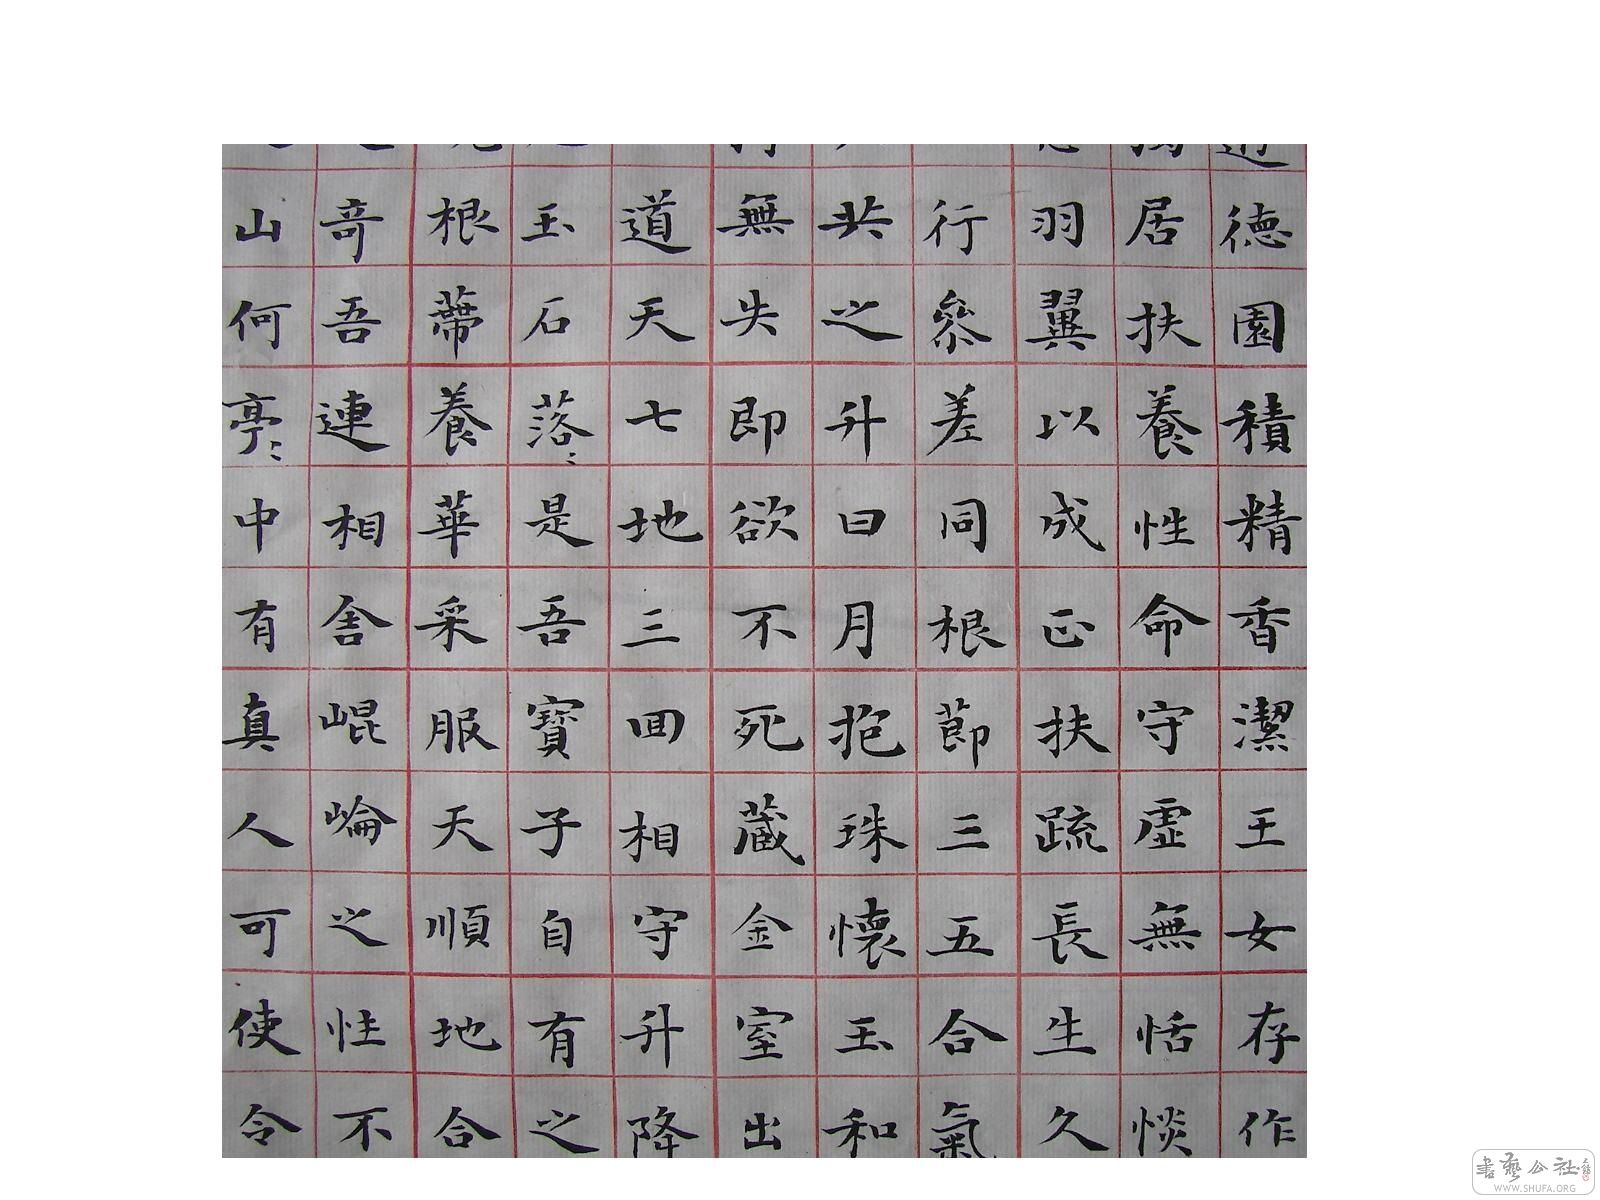 德園積精香潔王女存作
居扶養性命守虛無恬惔
羽翼以成正扶疏長生久
行參差同根節三五合氣
共之升日月抱珠懷玉和
無失即欲不死藏金室出
道天七地三回相守升降
玉石落〻是吾寶子自有之
根蔕養華采服天順地合
奇吾連相舎崐崘之性不
山何亭〻中有真人可使令
書藝公社
WWW.SHUFA.ORG